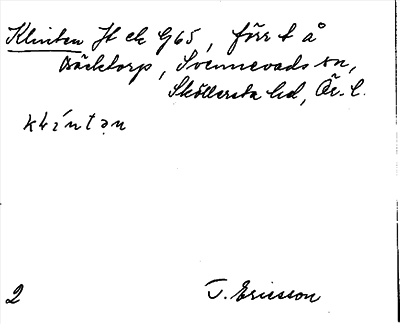 Klinten Jt ek G65, förr t å
Bäcktorp, Svennevads sn,
Sköllersta hd, Ör. l.
klintən
2 T. Ericsson